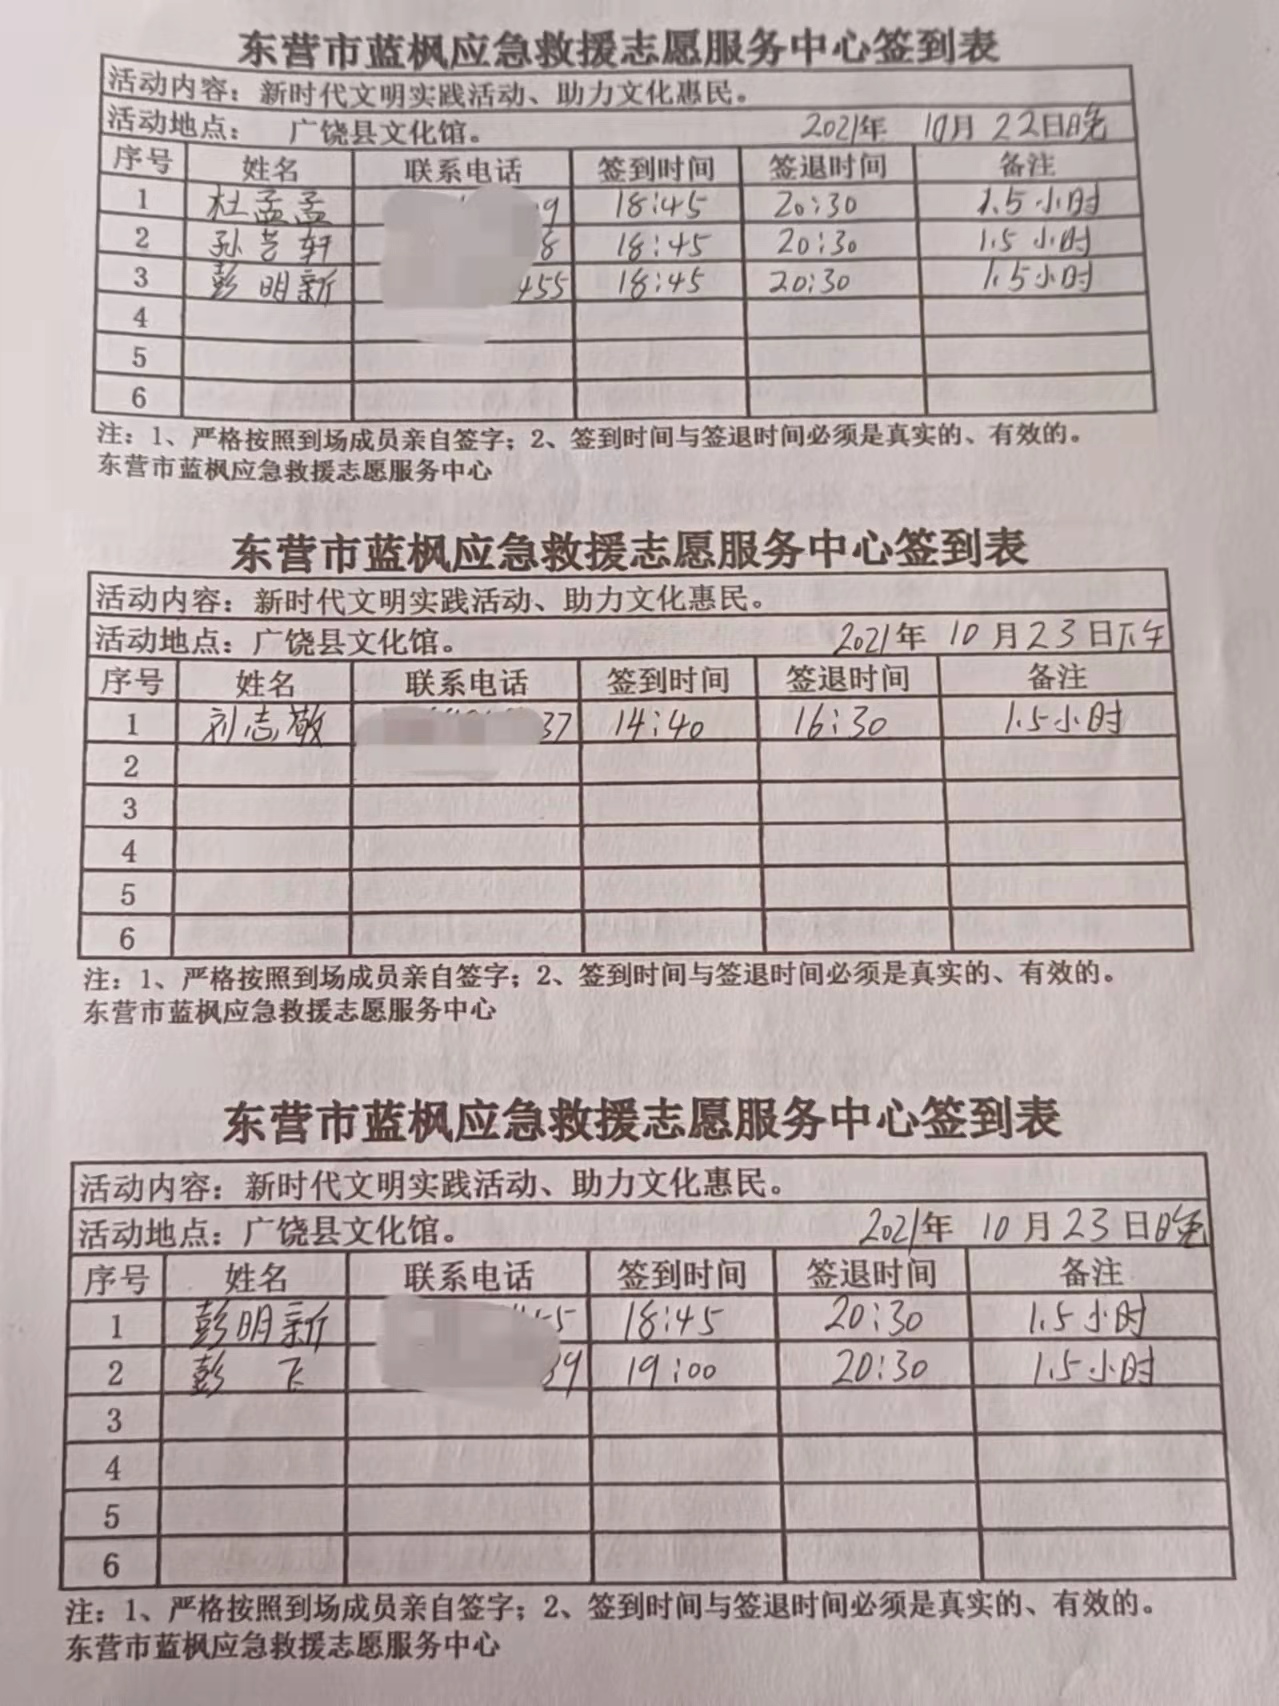 东营市蓝枫应急救援志愿服务中心签到表
活动内容：新时代文明实践活动、助力文化惠民。
活动地点： 广饶县文化馆。 2021年 10月 22日晚
序号 姓名 联系电话 签到时间 签退时间 备注
1 杜孟孟 9 18:45 20:30 1.5小时
2 孙艺轩 8 18:45 20:30 1.5小时
3 彭明新 455 18:45 20:30 1.5小时
4
5
6
注：1、严格按照到场成员亲自签字；2、签到时间与签退时间必须是真实的、有效的。
东营市蓝枫应急救援志愿服务中心
东营市蓝枫应急救援志愿服务中心签到表
活动内容：新时代文明实践活动、助力文化惠民。
活动地点：广饶县文化馆。 2021年 10月23日下午
序号 姓名 联系电话 签到时间 签退时间 备注
1 刘志敬 37 14:40 16:30 1.5小时
2
3
4
5
6
注：1、严格按照到场成员亲自签字；2、签到时间与签退时间必须是真实的、有效的。
东营市蓝枫应急救援志愿服务中心
东营市蓝枫应急救援志愿服务中心签到表
活动内容：新时代文明实践活动、助力文化惠民。
活动地点：广饶县文化馆。 2021年 10月23日晚
序号 姓名 联系电话 签到时间 签退时间 备注
1 彭明新 55 18:45 20:30 1.5小时
2 彭飞 39 19:00 20:30 1.5小时
3
4
5
6
注：1、严格按照到场成员亲自签字；2、签到时间与签退时间必须是真实的、有效的。
东营市蓝枫应急救援志愿服务中心